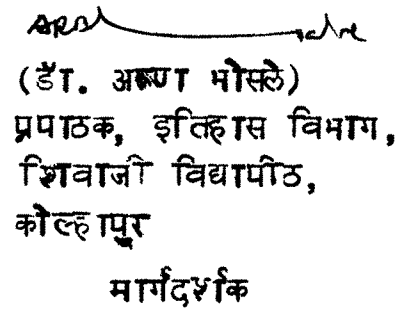 (डॉ. अरूणा भोसले)
प्रपाठक, इतिहास विभाग,
शिवाजी विद्यापीठ,
कोल्हापुर
मार्गदर्शक